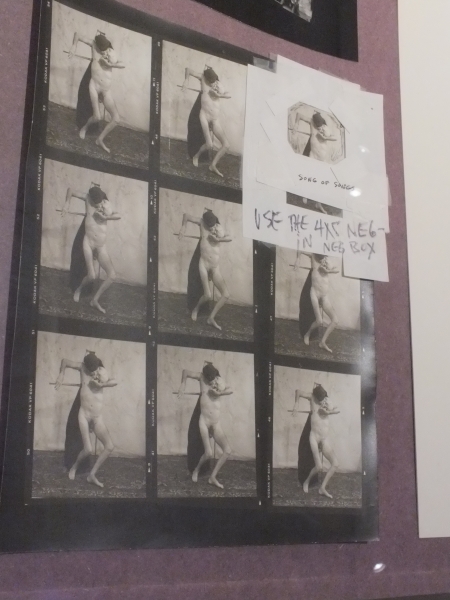 SONG OF SONGS
USE THE 4X5 NEG-
IN NEG BOX